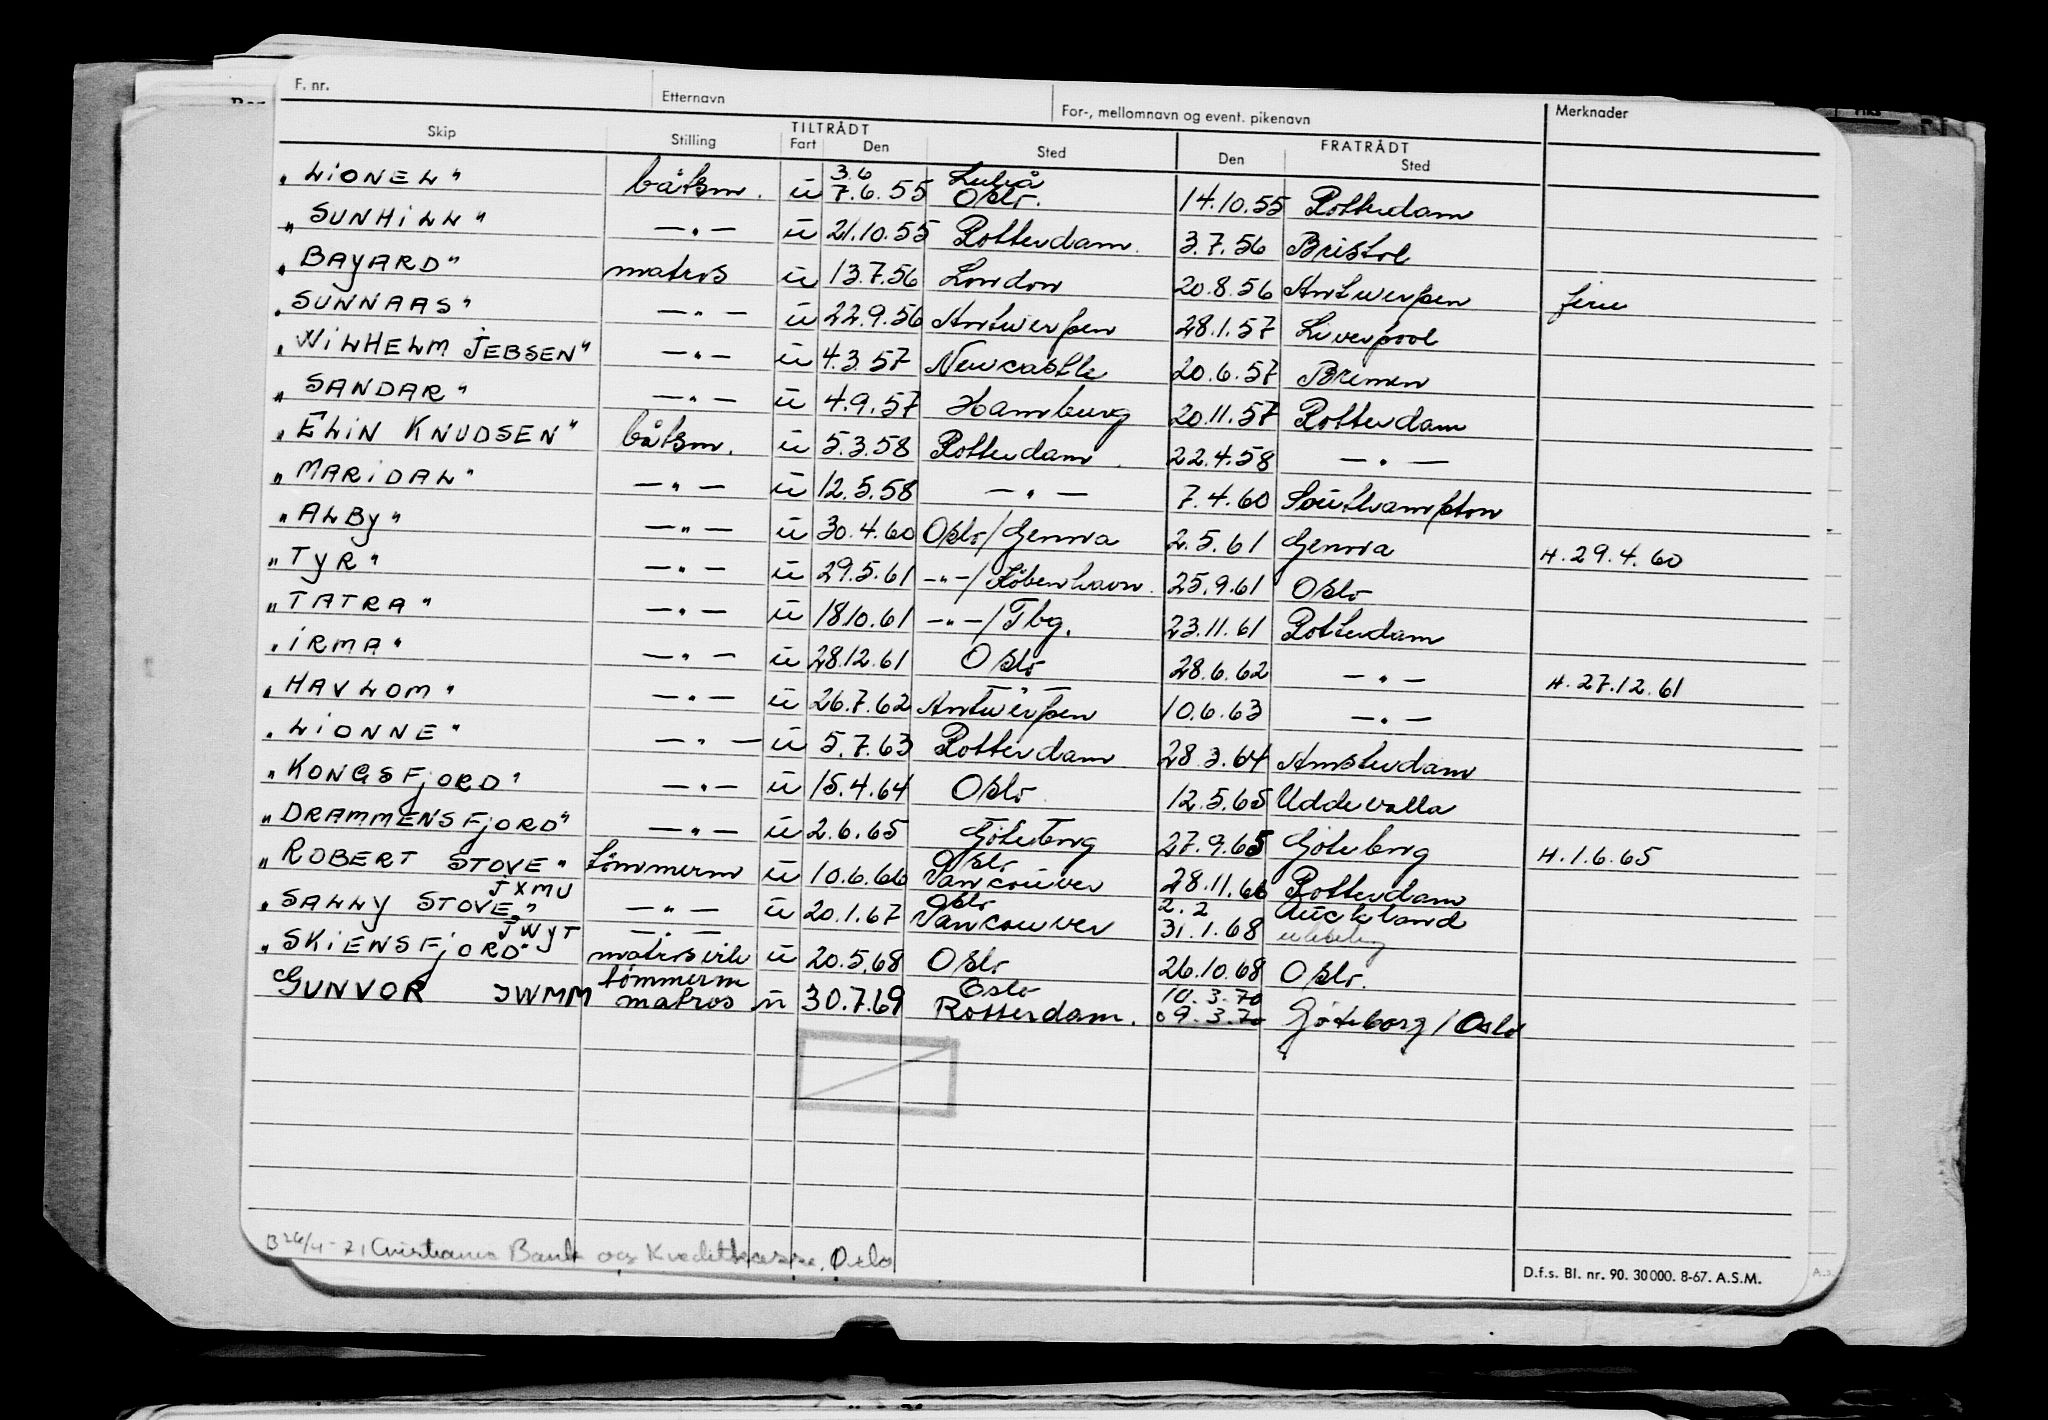 F. nr. Etternavn For-, mellomnavn og event. pikenavn Merknader
Skip Stilling TILTRÅDT Fart Den Sted FRATRÅDT Den Sted
3.6 Luleå
"LIONEL" båtsm. ū 7.6.55 Oslo. 14.10.55 Rotterdam
"SUNHILL" —"— ū 21.10.55 Rotterdam. 3.7.56 Bristol
"BAYARD" matros ū 13.7.56 London 20.8.56 Antwerpen ferie
"SUNNAAS" —"— ū 22.9.56 Antwerpen 28.1.57 Liverpool
"WILHELM JEBSEN" —"— ū 4.3.57 Newcastle 20.6.57 Bremen
"SANDAR" —"— ū 4.9.57 Hamburg 20.11.57 Rotterdam
"ELIN KNUDSEN" båtsm. ū 5.3.58 Rotterdam. 22.4.58 —"—
"MARIDAL" —"— ū 12.5.58 —"— 7.4.60 Southampton
"ALBY" —"— ū 30.4.60 Oslo/Genova 2.5.61 Genova H. 29.4.60
"TYR" —"— ū 29.5.61 —"—/København. 25.9.61 Oslo
"TATRA" —"— ū 18.10.61 —"—/Tbg. 23.11.61 Rotterdam
"IRMA" —"— ū 28.12.61 Oslo 28.6.62 —"— H. 27.12.61
"HAVLOM" —"— ū 26.7.62 Antwerpen 10.6.63 —"—
"LIONNE" —"— ū 5.7.63 Rotterdam 28.3.64 Amsterdam
"KONGSFJORD" —"— ū 15.4.64 Oslo 12.5.65 Uddevalla
"DRAMMENSFJORD" —"— ū 2.6.65 Göteborg 27.9.65 Göteborg H. 1.6.65
Oslo
"ROBERT STOVE" tömmerm ū 10.6.66 Vancouver 28.11.66 Rotterdam
JXMU Oslo 2.2 Auckland
"SALLY STOVE" —"— ū 20.1.67 Vancouver 31.1.68
JWYT —"—
"SKIENSFJORD" matrosvik ū 20.5.68 Oslo 26.10.68 Oslo.
tømmerm Oslo 10.3.70
GUNVOR JWMM matros ū 30.7.69 Rotterdam. 09.3.70 Göteborg / Oslo
B 26/4-71 Cristiania Bank og Kreditkasse, Oslo
D.f.s. Bl. nr. 90. 30 000. 8-67. A.S.M.